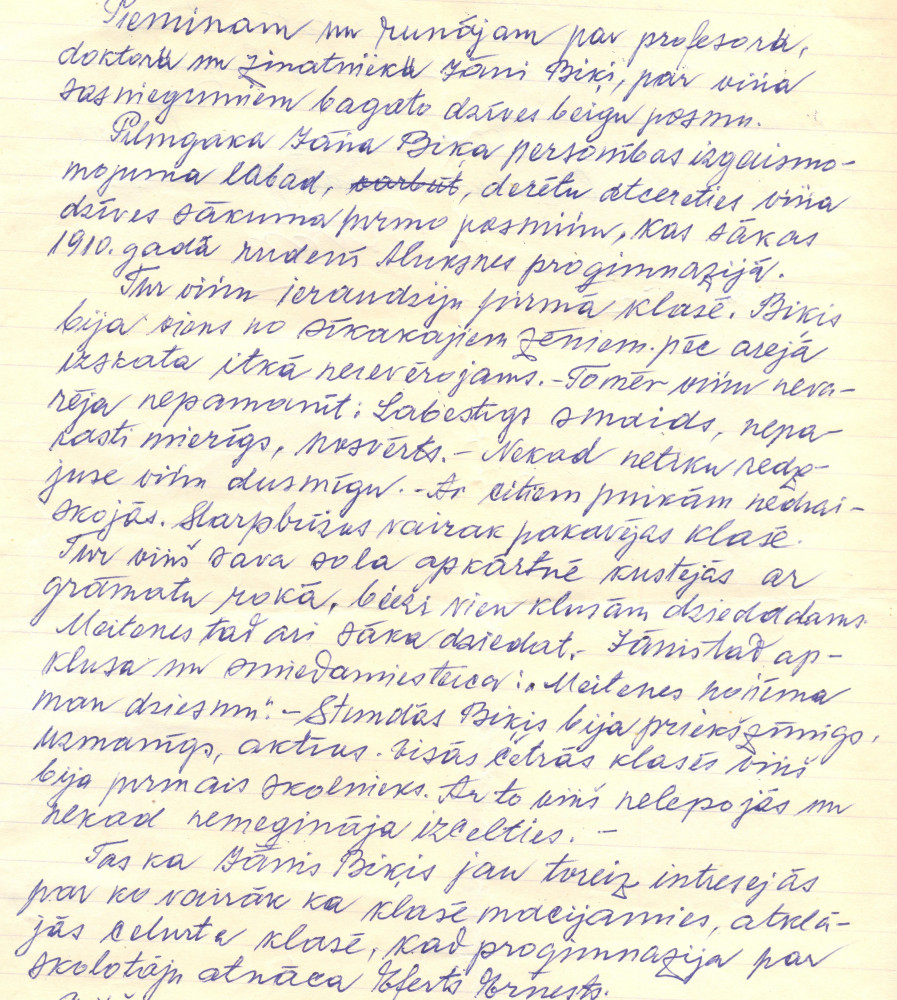 Pieminam un runājam par profesoru,
doktoru un zinatnieku Jāni Biķi, par viņa
sasniegumiem bagato dzīves beigu posmu.
Pilnīgaka Jāņa Biķa personības izgaismo-
mojuma labad, varbūt, derētu atcereties viņa
dzīves sākuma pirmo posmiņu, kas sākas
1910. gadā rudenī Aluksnes progimnazijā.
Tur viņu ieraudziju pirmā klasē. Biķis
bija viens no sīkakajiem zēniem. pēc arejā
izskata itkā neievērojams. - Tomēr viņu neva-
rēja nepamanīt: Labestīgs smaids, nepa-
rasti mierīgs, nosvērts. - Nekad netiku redz-
juse viņu dusmīgu. - Ar citiem puikām nedrai-
skojās. Starpbrīžus vairak pakavējas klasē.
Tur viņš sava sola apkārtnē kustējās ar
grāmatu rokā, bieži vien klusām dziedadams
Meitenes tad ari sāka dziedat. Jānis tad ap-
klusa un smiedamies teica: "Meitenes noņēma
man dziesmu". - Stundās Biķis bija priekšzīmīgs,
uzmanīgs, aktīvs. Visās četrās klasēs viņš
bija pirmais skolnieks. Ar to viņš nelepojās un
nekad nemeginaja izcelties. -
Tas ka Jānis Biķis jau toreiz intresejās
par ko vairāk ka klasē macijamies, atklā-
jās ceturtā klasē, kad progimnazija par
skolotāju atnāca Eferts Ernests.